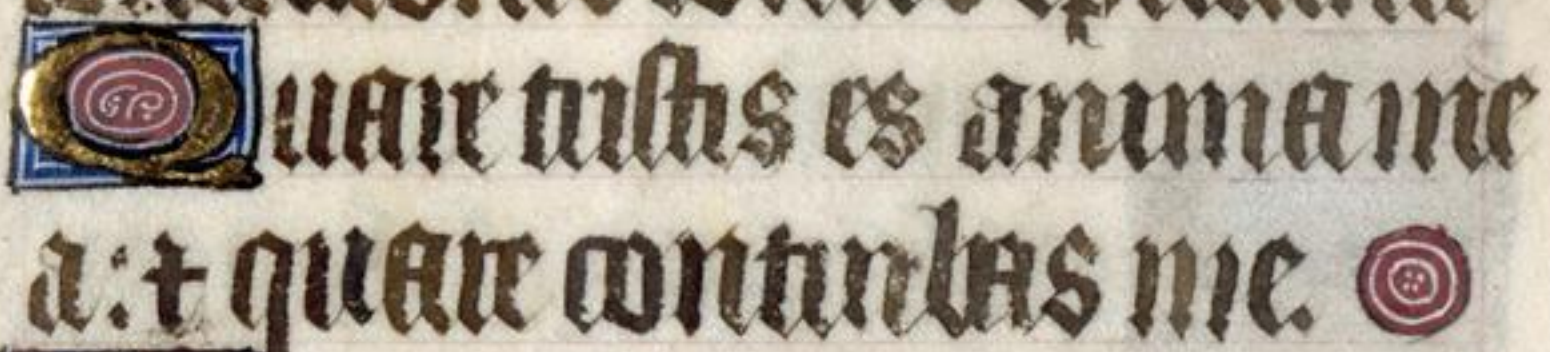 Quare tristis es anima me
a: et quare conturbas me.